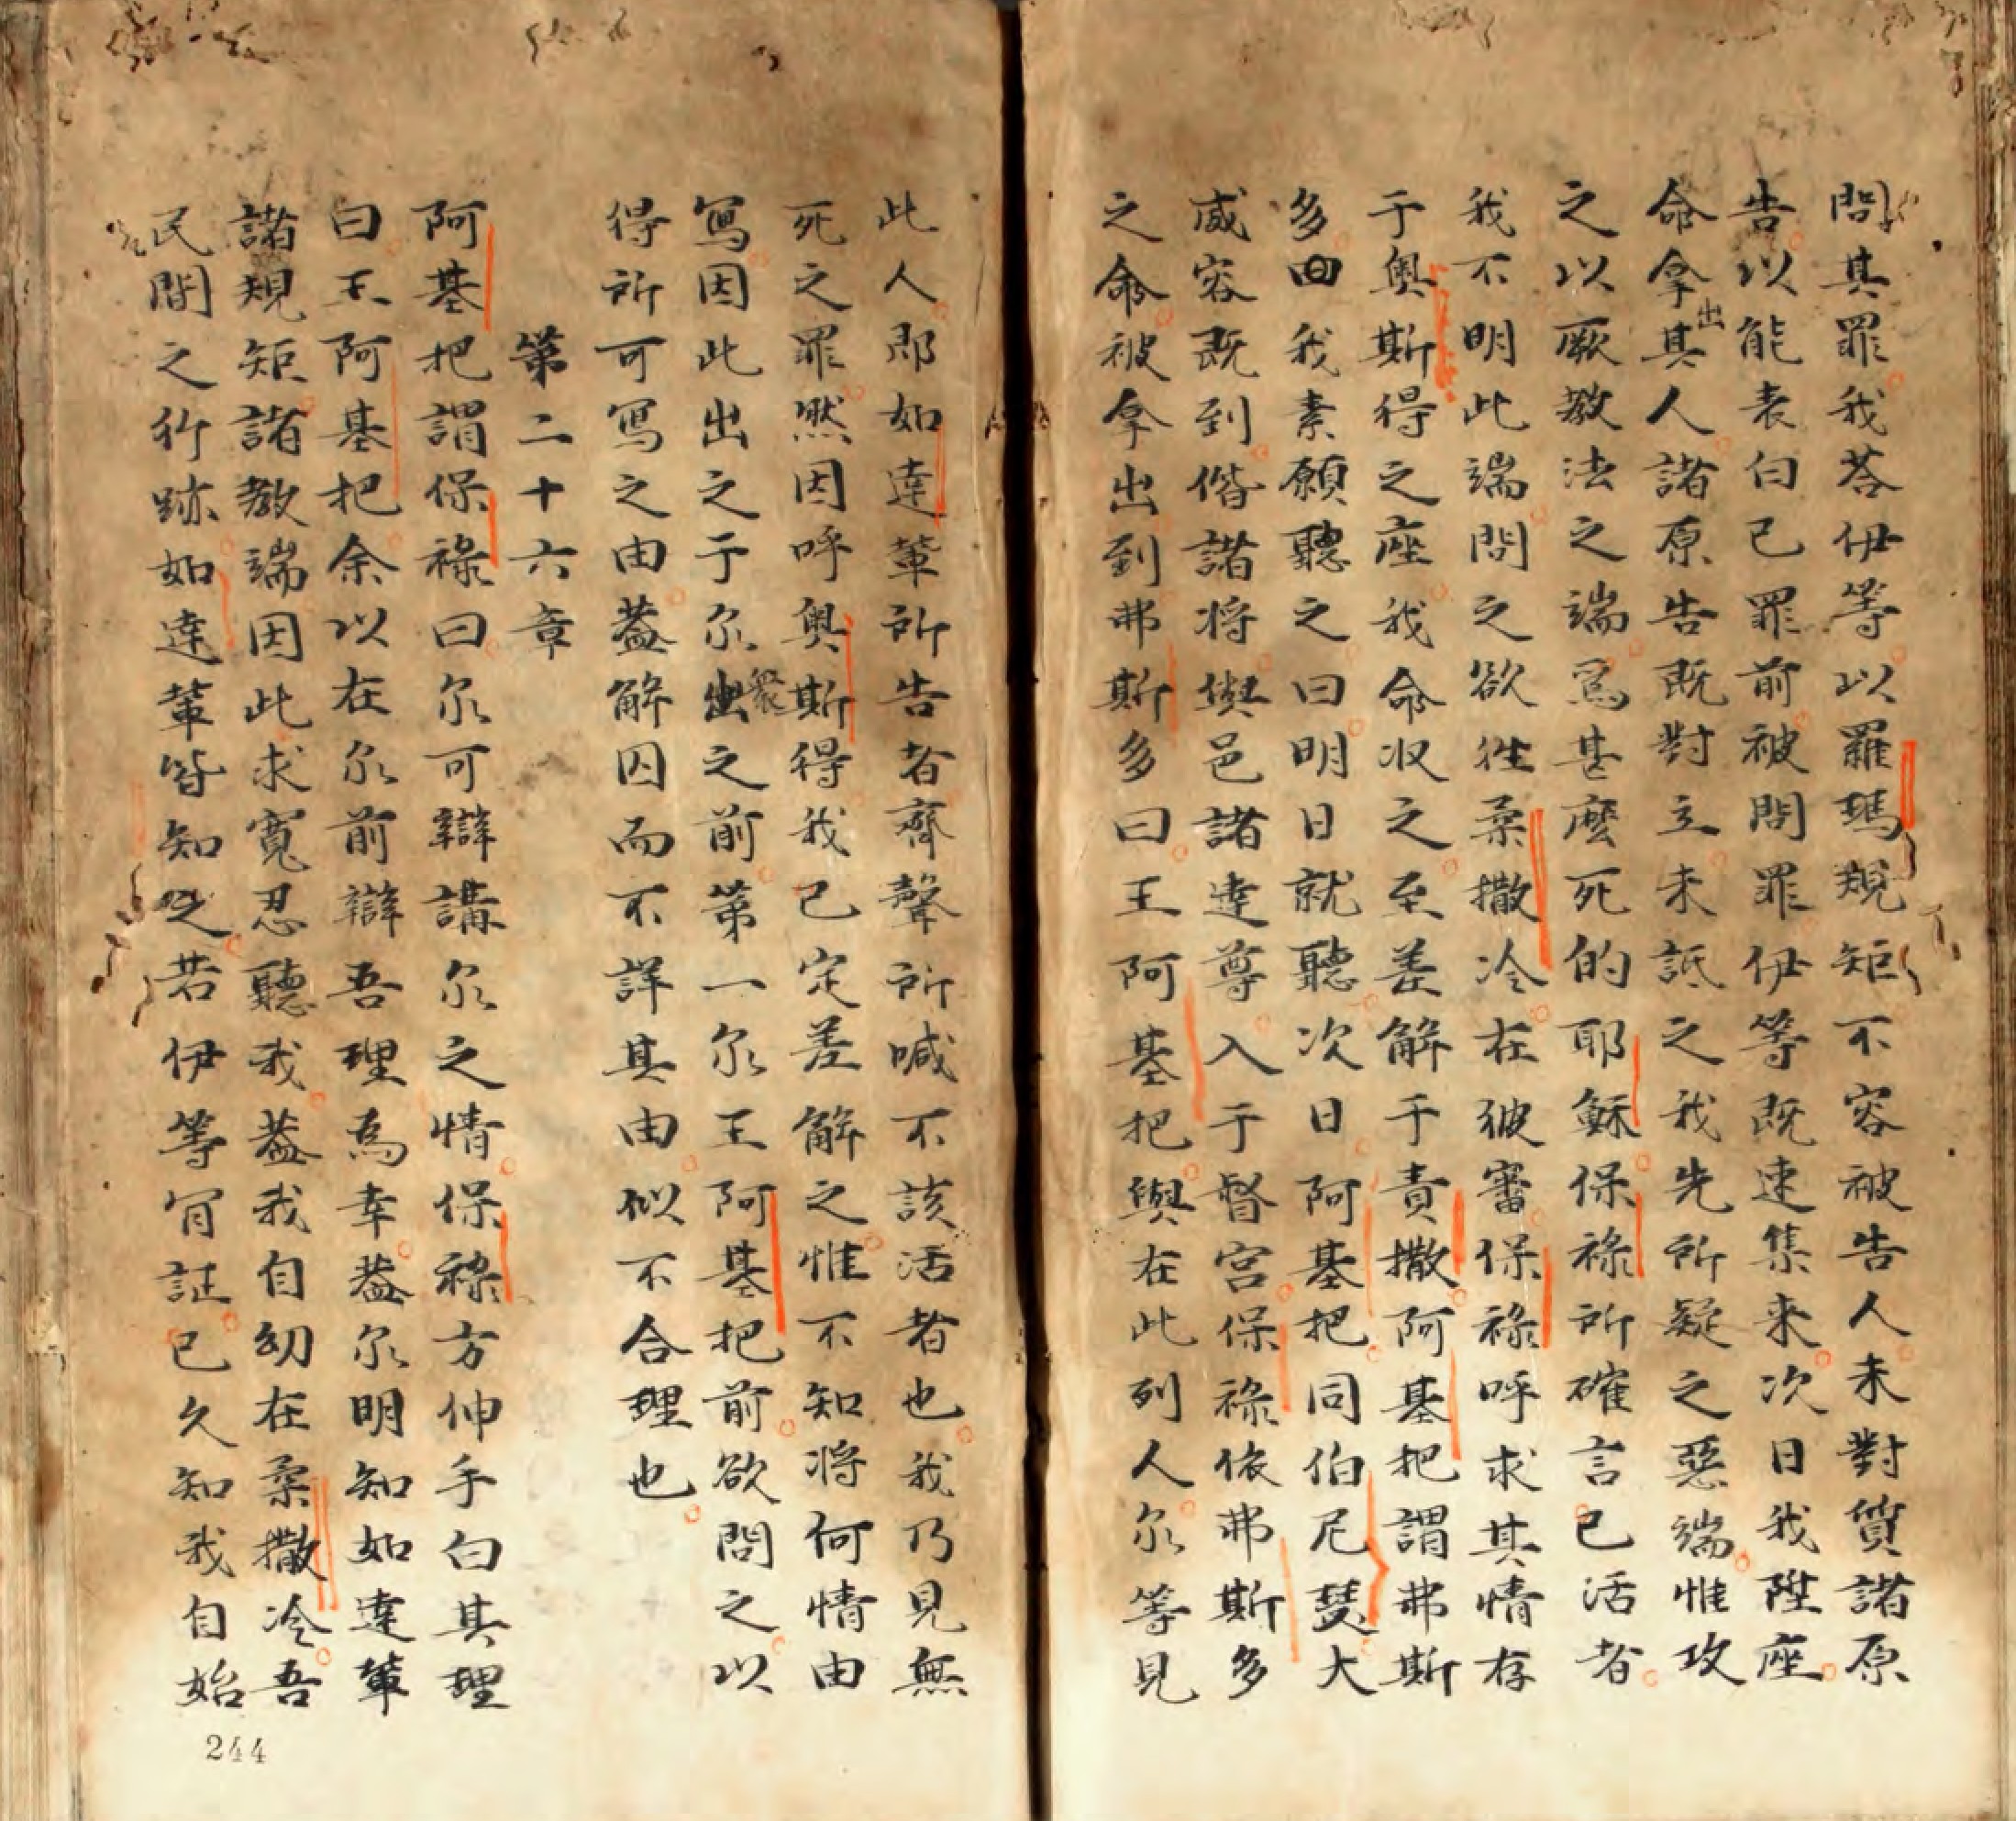 問其罪我荅伊等以羅瑪規矩不容被告人未對質諸原
告以能表白己罪前被問罪伊等既速集来次日我陞座
命拿出其人諸原告既對立未詆之我先所疑之惡端惟攻
之以厥教法之端爲甚麽死的耶穌保祿所確言已活者
我不明此端問之欲徃桒撒冷在彼審保祿呼求其情存
于奥斯得之座我命収之至差解于責撒阿基把謂弗斯
多曰我素願聽之曰明日就聽次日阿基把同伯尼瑟大
威容既到偕諸将與邑諸達尊入于督宫保祿依弗斯多
之命被拿出到弗斯多曰王阿基把與在此列人尔等見
此人即如達軰所告者齊聲所喊不該活者也我乃見無
死之罪然因呼奥斯得我已定差解之惟不知将何情由
寫因此出之于尔衆之前第一尔王阿基把前欲問之以
得所可寫之由葢解囚而不詳其由似不合理也
第二十六章
阿基把謂保祿曰尔可辯講尔之情保祿方伸手白其理
曰王阿基把余以在尔前辯吾理為幸葢尔明知如達軰
諸規矩諸教端因此求寬忍聽我葢我自幼在桒撒冷吾
民間之行跡如達軰皆知之若伊等肯証已久知我自始
244